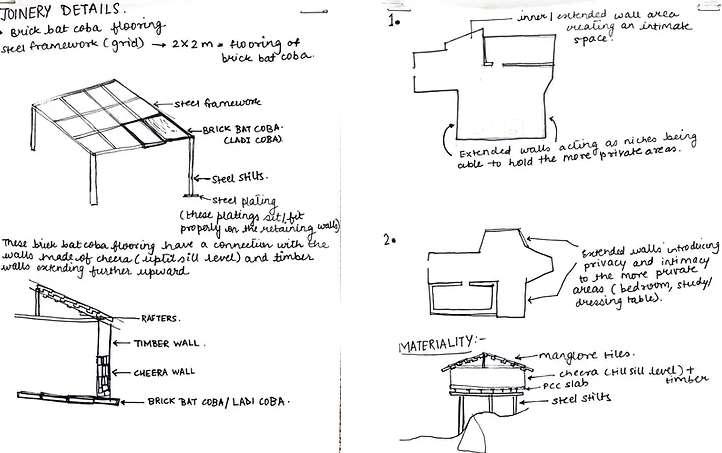 JOINERY DETAILS.
• Brick bat coba flooring
Steel framework (grid) → 2x2 m = flooring of
brick bat coba.
steel framework
BRICK BAT COBA.
(LADI COBA).
Steel Stilts.
Steel plating
(these platings sit/fit
properly on the retaining walls)
These brick bat coba flooring have a connection with the
walls made of cheera (uptil sill level) and timber
walls extending further upward
RAFTERS.
TIMBER WALL.
CHEERA WALL
BRICK BAT COBA/ LADI COBA.
1.
inner/extended wall area
creating an intimate
space.
Extended walls acting as niches being
able to hold the more private areas.
2.
Extended walls introducing
privacy and intimacy
to the more private
areas (bedroom, study/
dressing table).
MATERIALITY:-
manglore tiles.
cheera (till sill level) +
timber
PCC slab
steel stilts